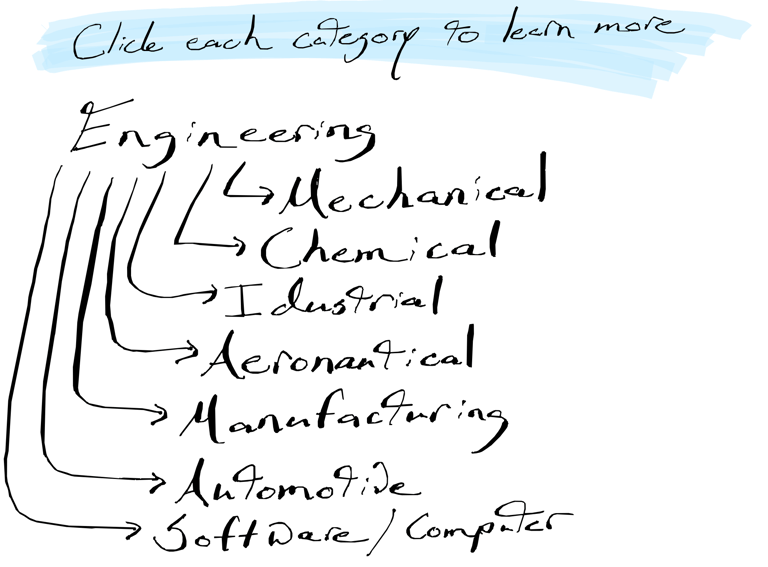 Click each category to learn more
Engineering
Mechanical
Chemical
Idustrial
Aeronautical
Manufacturing
Automotive
Software/Computer